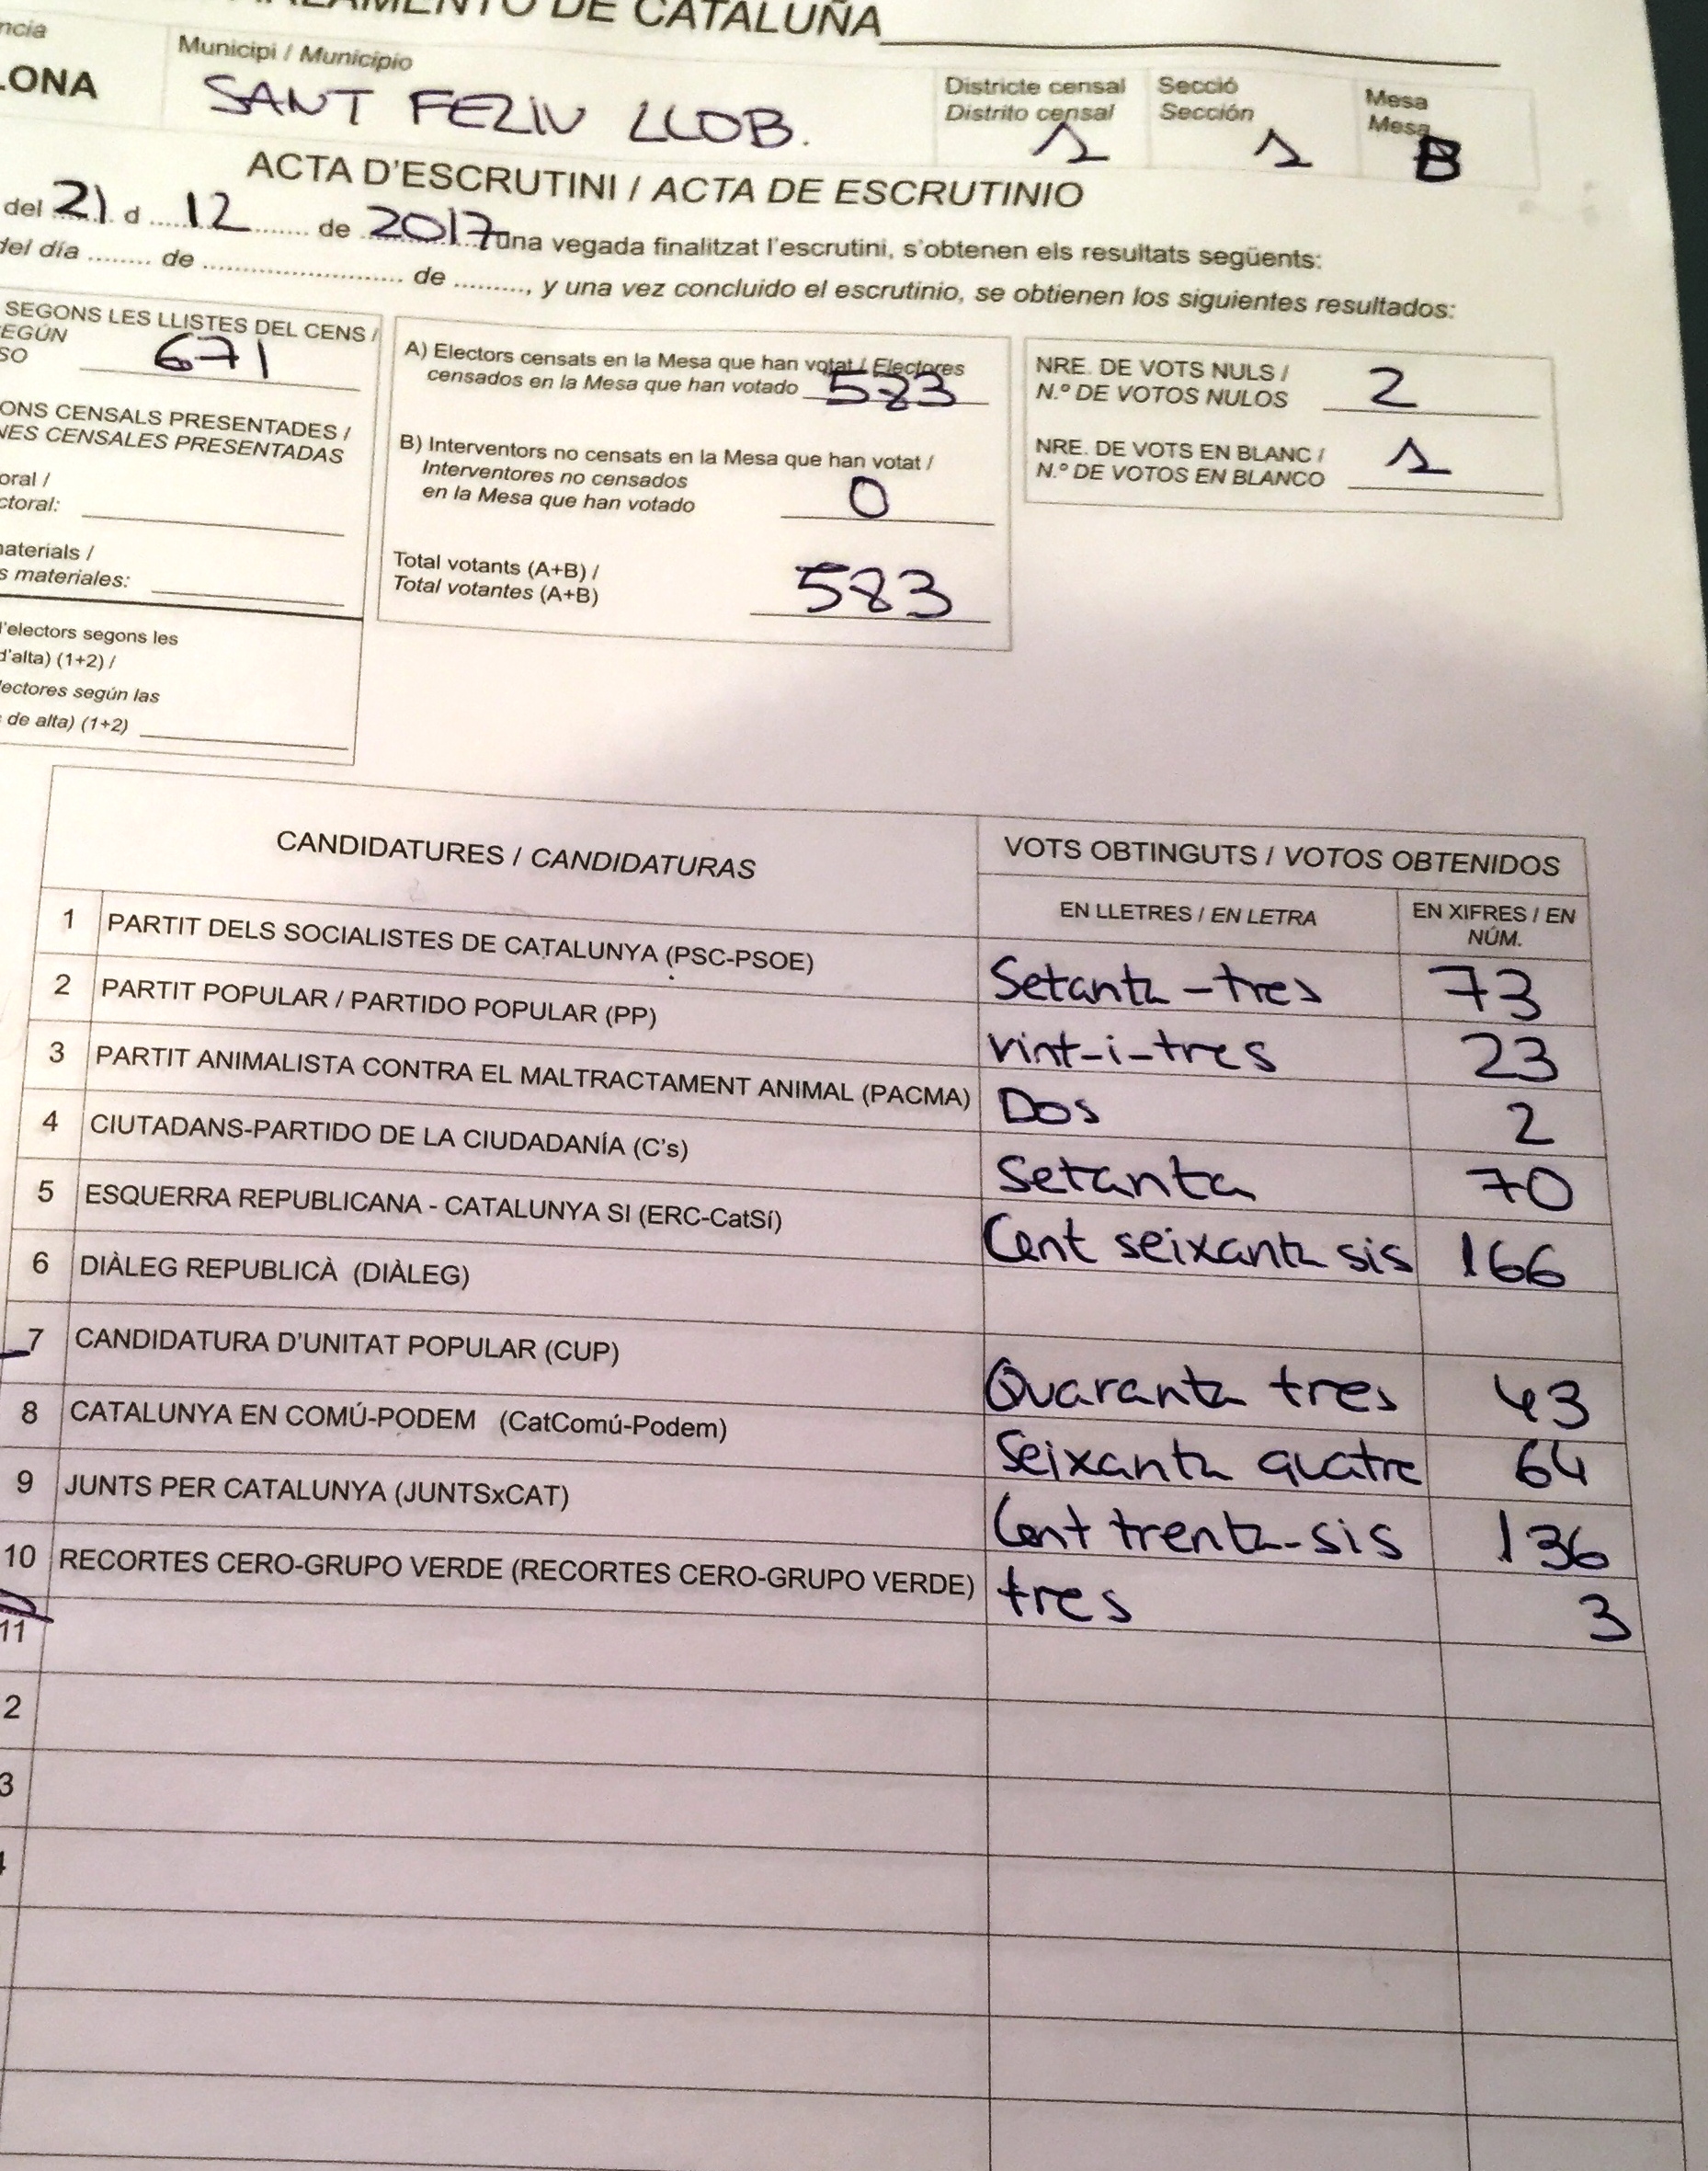 DE CATALUÑA
Municipi / Municipio
Districte censal Secció Mesa
Distrito censal Sección Mesa
LONA SANT FELIU LLOB. 1 1 B
ACTA D'ESCRUTINI / ACTA DE ESCRUTINIO
del 21 d 12 de 2017 una vegada finalitzat l'escrutini, s'obtenen els resultats següents:
del día ........ de .................... de ........, y una vez concluido el escrutinio, se obtienen los siguientes resultados:
SEGONS LES LLISTES DEL CENS /
EGÚN
SO 671
ONS CENSALS PRESENTADES /
NES CENSALES PRESENTADAS
oral /
ctoral:
materials /
s materiales:
'electors segons les
d'alta) (1+2) /
ectores según las
de alta) (1+2)
A) Electors censats en la Mesa que han votat / Electores
censados en la Mesa que han votado 583
B) Interventors no censats en la Mesa que han votat /
Interventores no censados
en la Mesa que han votado 0
Total votants (A+B) /
Total votantes (A+B) 583
NRE. DE VOTS NULS /
N.º DE VOTOS NULOS 2
NRE. DE VOTS EN BLANC /
N.º DE VOTOS EN BLANCO 1
CANDIDATURES / CANDIDATURAS
VOTS OBTINGUTS / VOTOS OBTENIDOS
EN LLETRES / EN LETRA
EN XIFRES / EN
NÚM.
1 PARTIT DELS SOCIALISTES DE CATALUNYA (PSC-PSOE) Setanta-tres 73
2 PARTIT POPULAR / PARTIDO POPULAR (PP) vint-i-tres 23
3 PARTIT ANIMALISTA CONTRA EL MALTRACTAMENT ANIMAL (PACMA) Dos 2
4 CIUTADANS-PARTIDO DE LA CIUDADANÍA (C's) Setanta 70
5 ESQUERRA REPUBLICANA - CATALUNYA SI (ERC-CatSí) Cent seixanta sis 166
6 DIÀLEG REPUBLICÀ (DIÀLEG)
7 CANDIDATURA D'UNITAT POPULAR (CUP) Quaranta tres 43
8 CATALUNYA EN COMÚ-PODEM (CatComú-Podem) Seixanta quatre 64
9 JUNTS PER CATALUNYA (JUNTSxCAT) Cent trenta-sis 136
10 RECORTES CERO-GRUPO VERDE (RECORTES CERO-GRUPO VERDE) tres 3
11
2
3